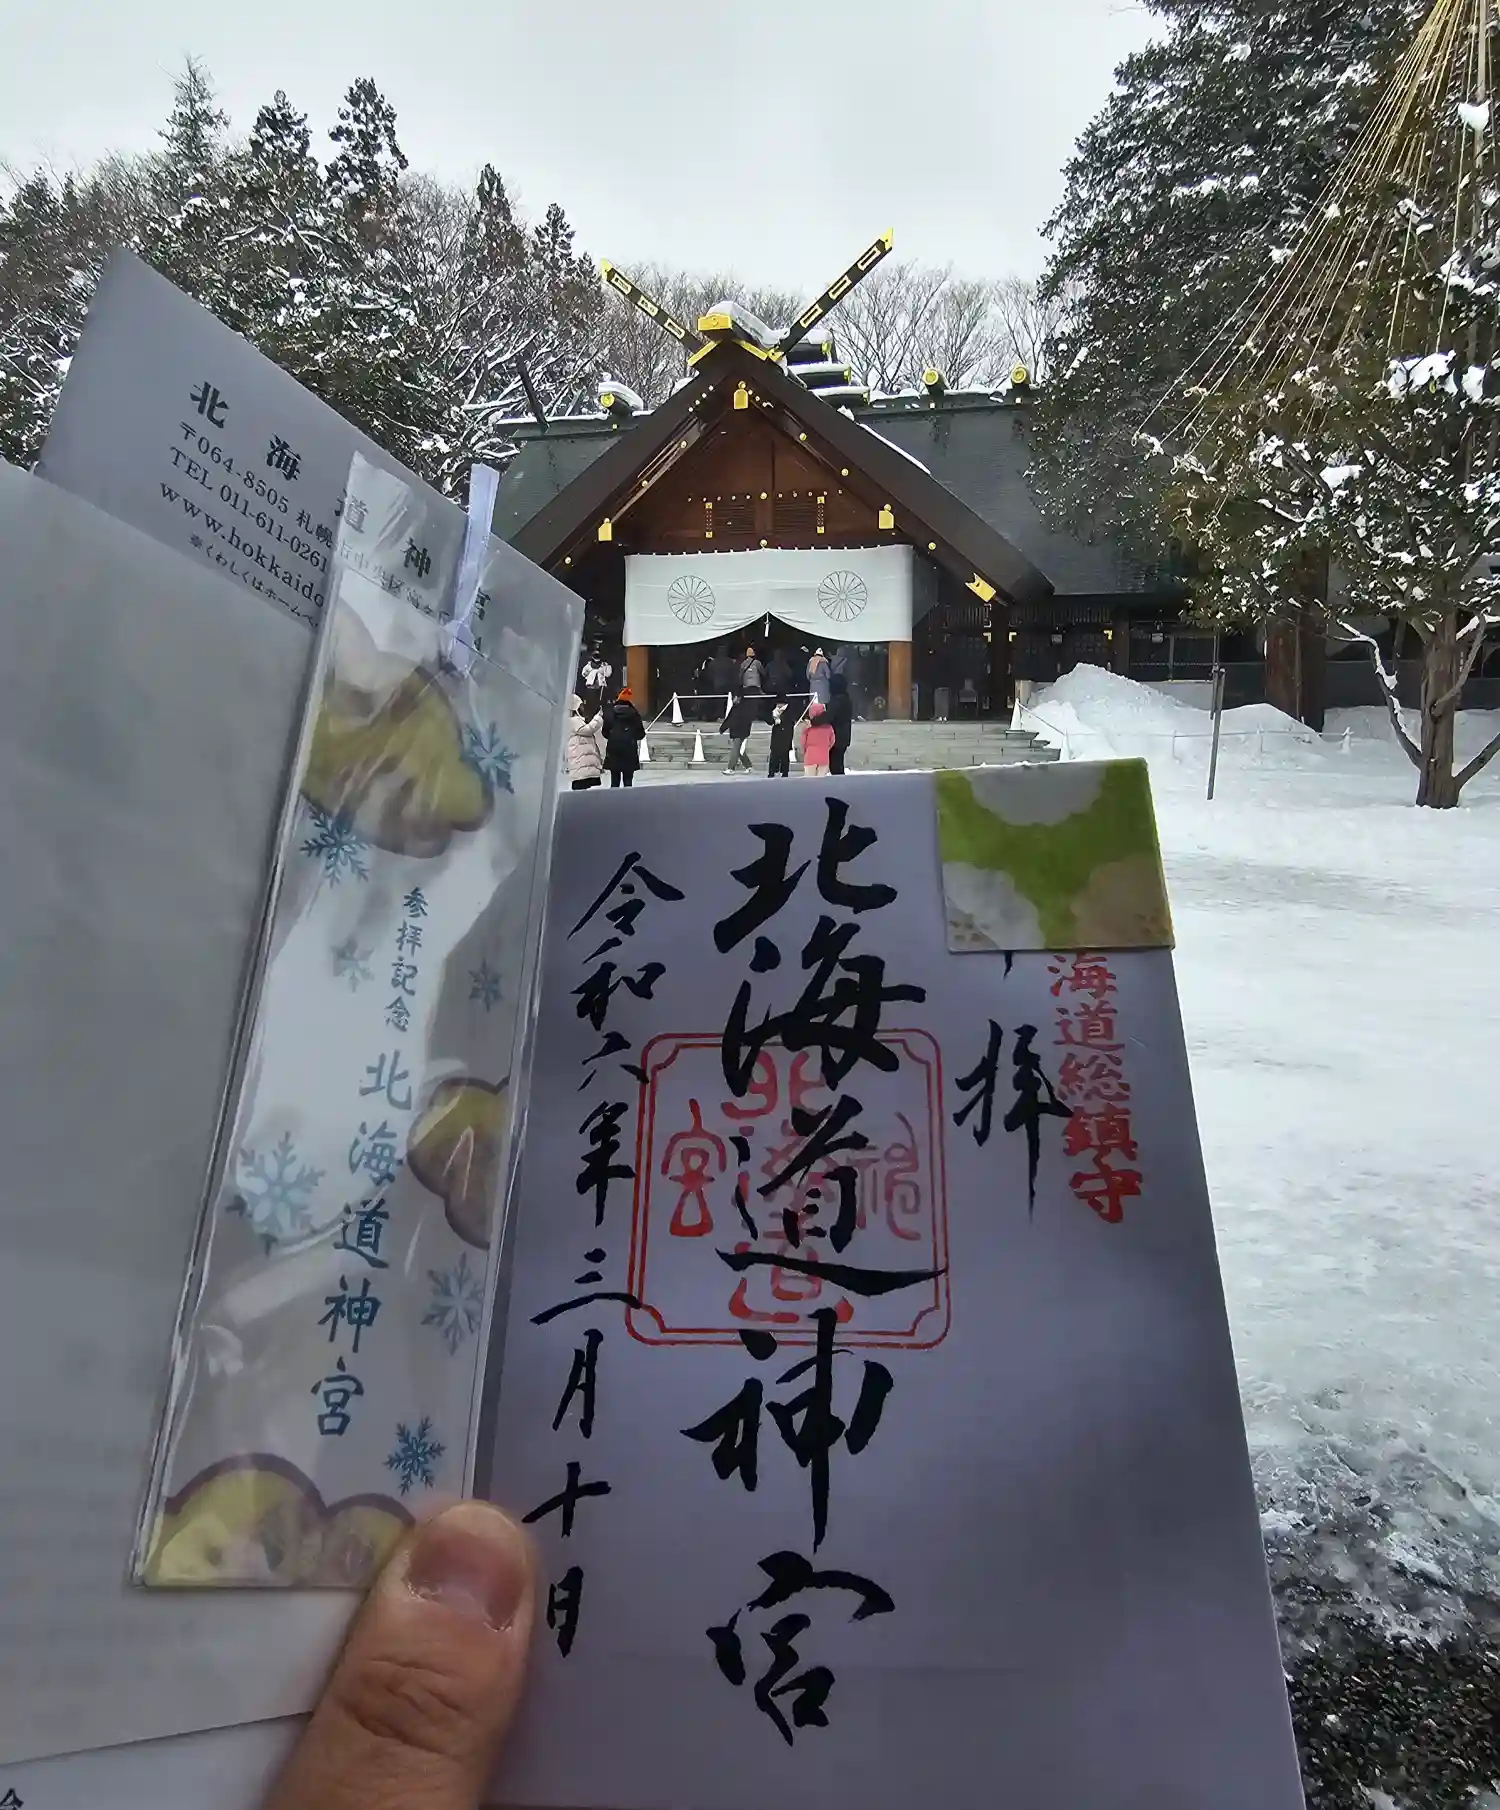 北海道神宮
〒064-8505 札幌市中央区宮
TEL 011-611-0261
www.hokkaido
※くわしくはホームペ
参拝記念
北海道神宮
海道総鎮守
拝
北海道神宮
北海道神宮
令和六年三月十日